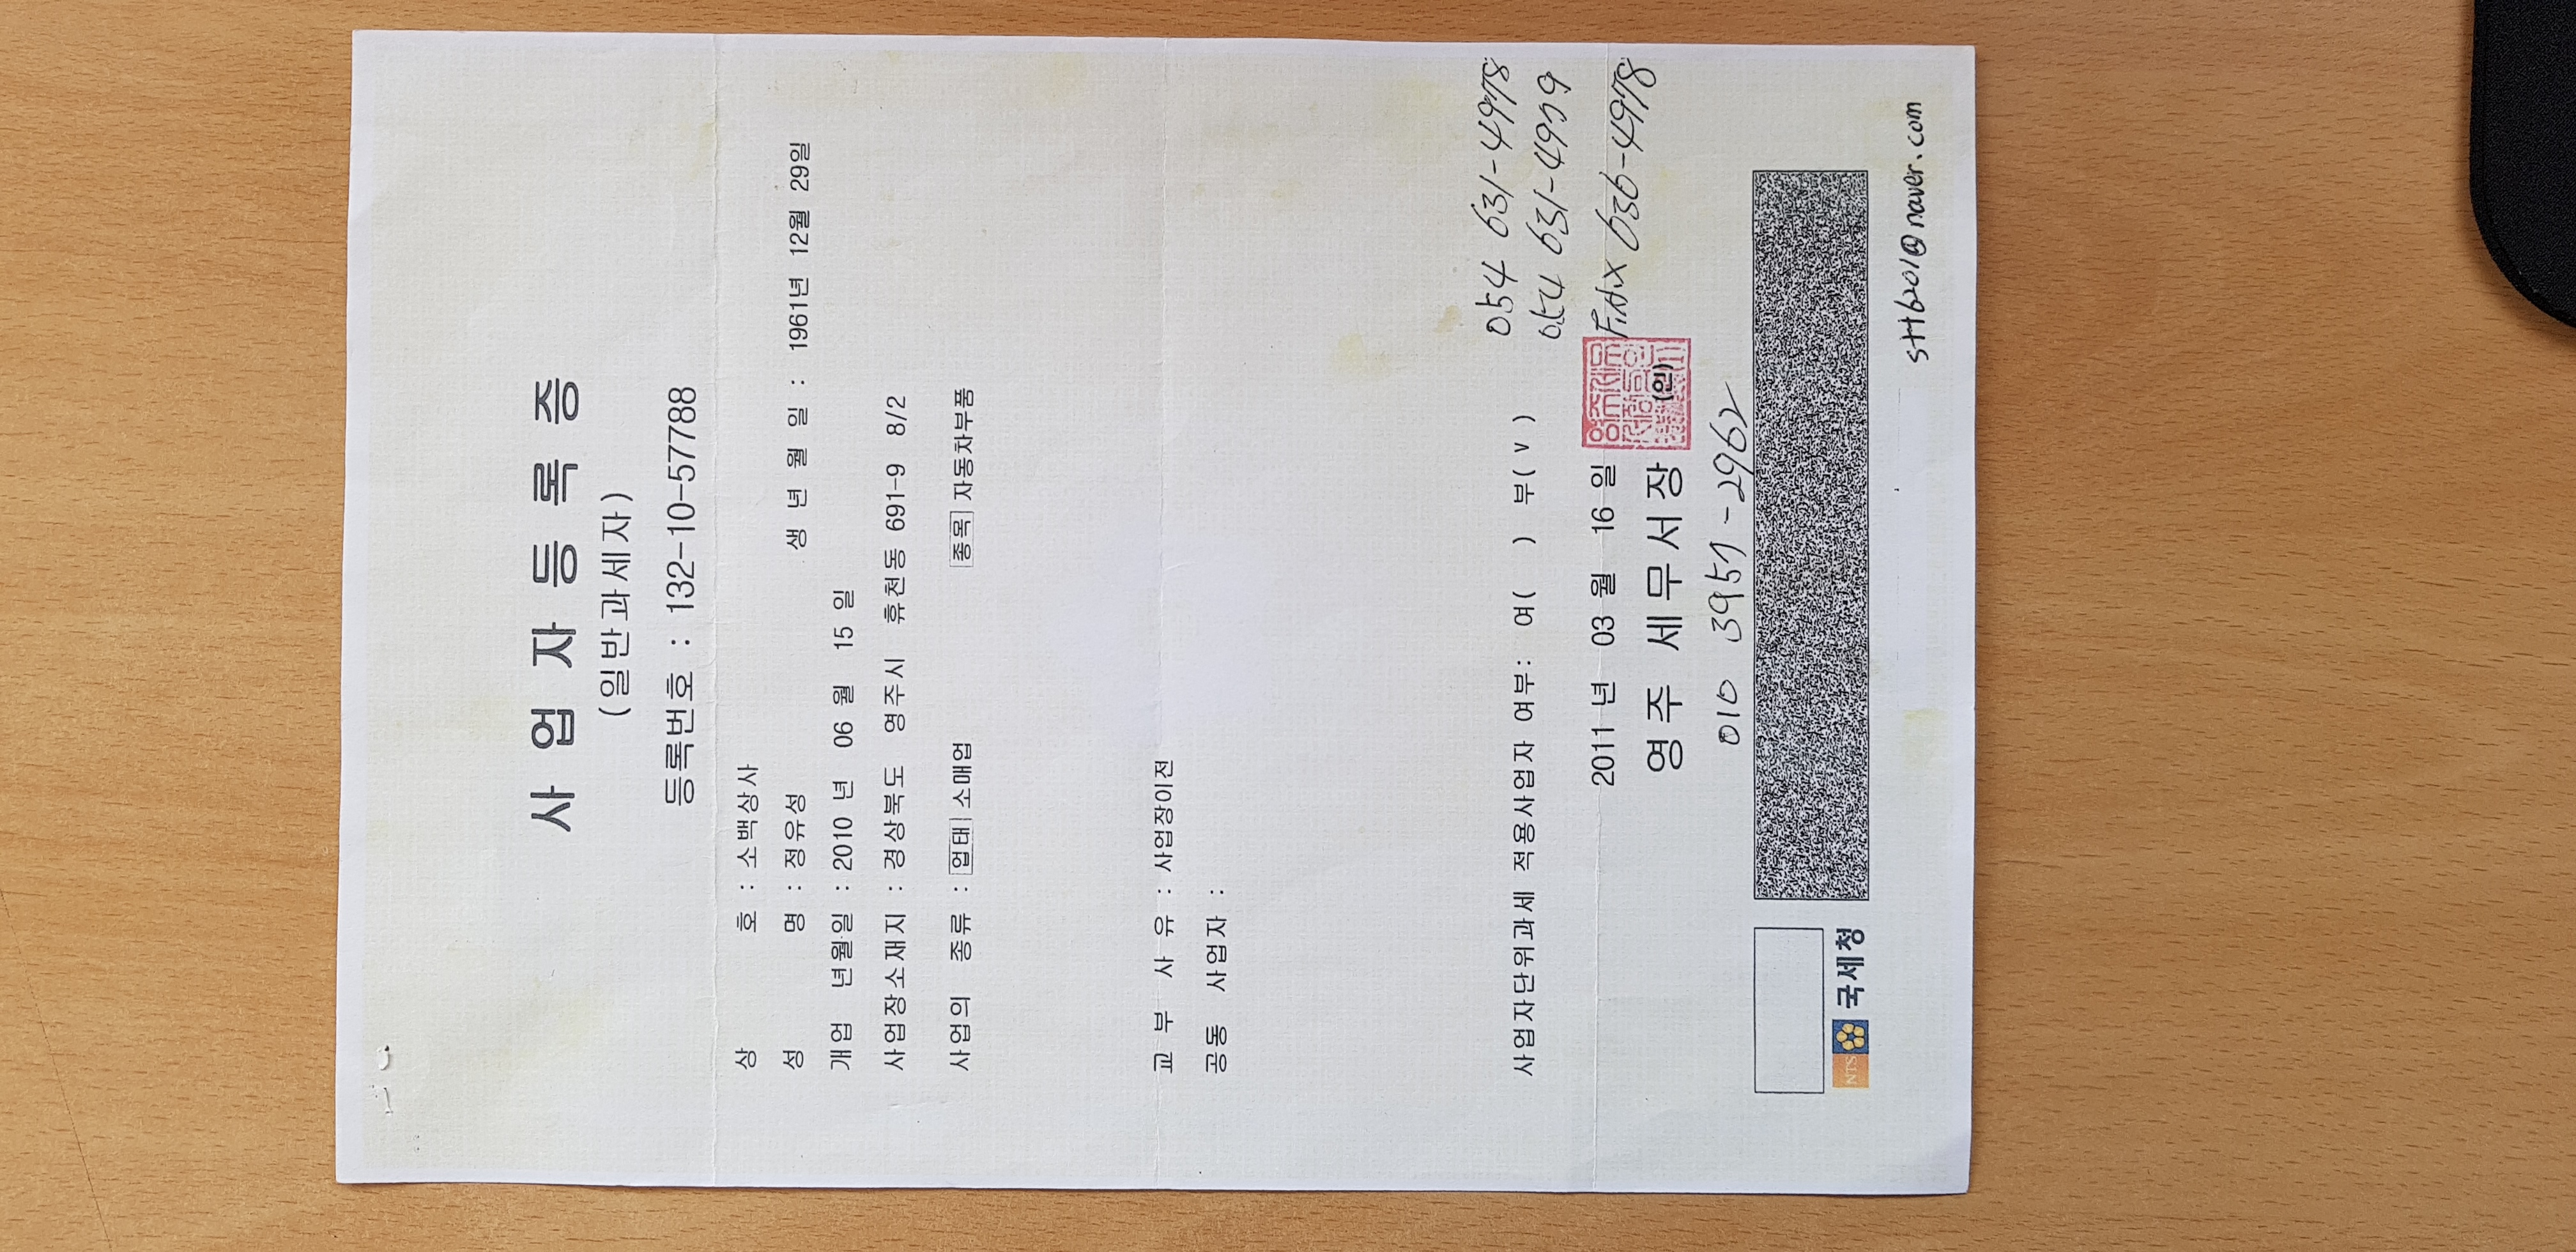 사 업 자 등 록 증
(일반과세자)
등록번호 : 132-10-57788
상 호 : 소백상사
성 명 : 정유성 생 년 월 일 : 1961년 12월 29일
개업 년월일 : 2010 년 06 월 15 일
사업장소재지 : 경상북도 영주시 휴천동 691-9 8/2
사업의 종류 : 업태 소매업 종목 자동차부품
교 부 사 유 : 사업장이전
공동 사업자 :
054 631-4978
054 631-4979
사업자단위과세 적용사업자 여부: 여( ) 부( v )
Fax 636-4978
2011 년 03 월 16 일
영주 세무서장 (인)
010 3957-2962
NTS 국세청
@naver.com